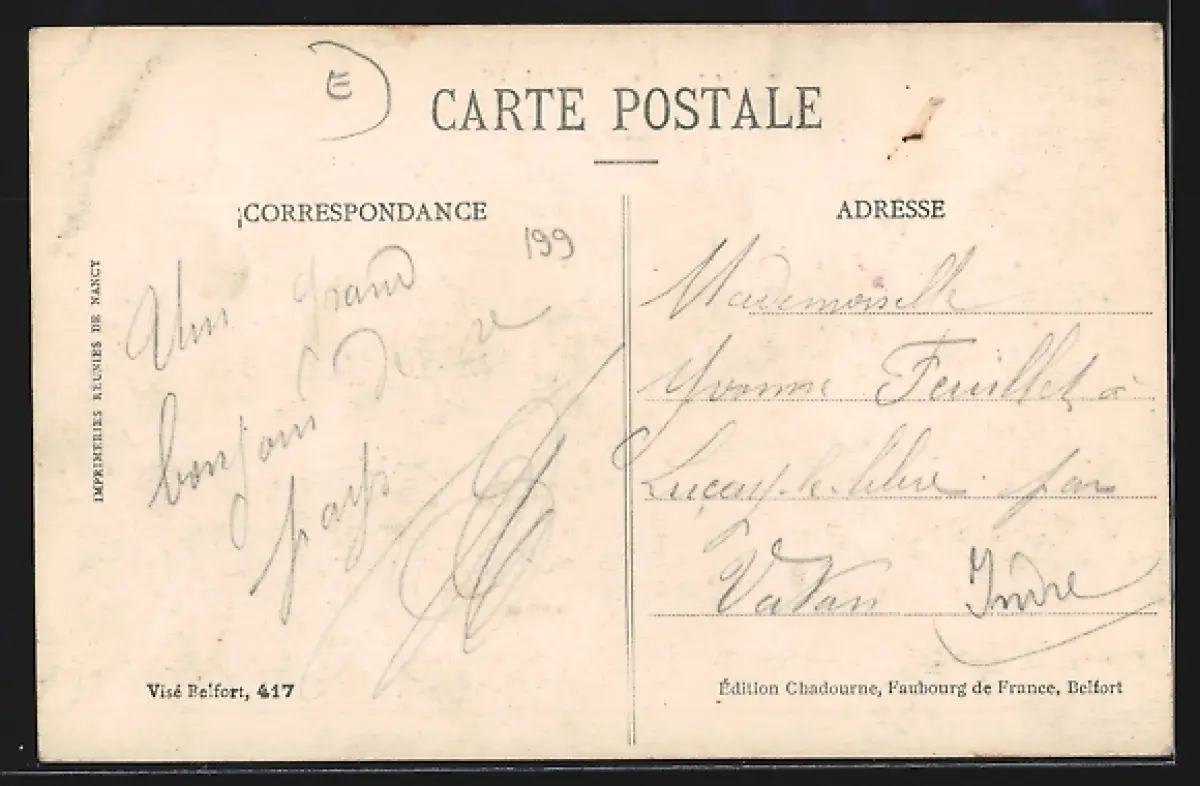 E
CARTE POSTALE
CORRESPONDANCE
199
Un grand
bonjour de
pays
IMPRIMERIES REUNIES DE NANCY
Visé Belfort, 417
ADRESSE
Mademoiselle
Yvonne Feuillet à
Luçay-le-libre par
Vatan Indre
Édition Chadourne, Faubourg de France, Belfort